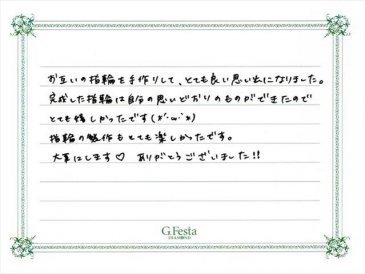 お互いの指輪を手作りして、とても良い思い出になりました。
完成した指輪は自分の思いどおりのものができたので
とても嬉しかったです(*'ω'*)
指輪の製作もとても楽しかったです。
大事にします♡ ありがとうございました!!
G.Festa
DIAMOND